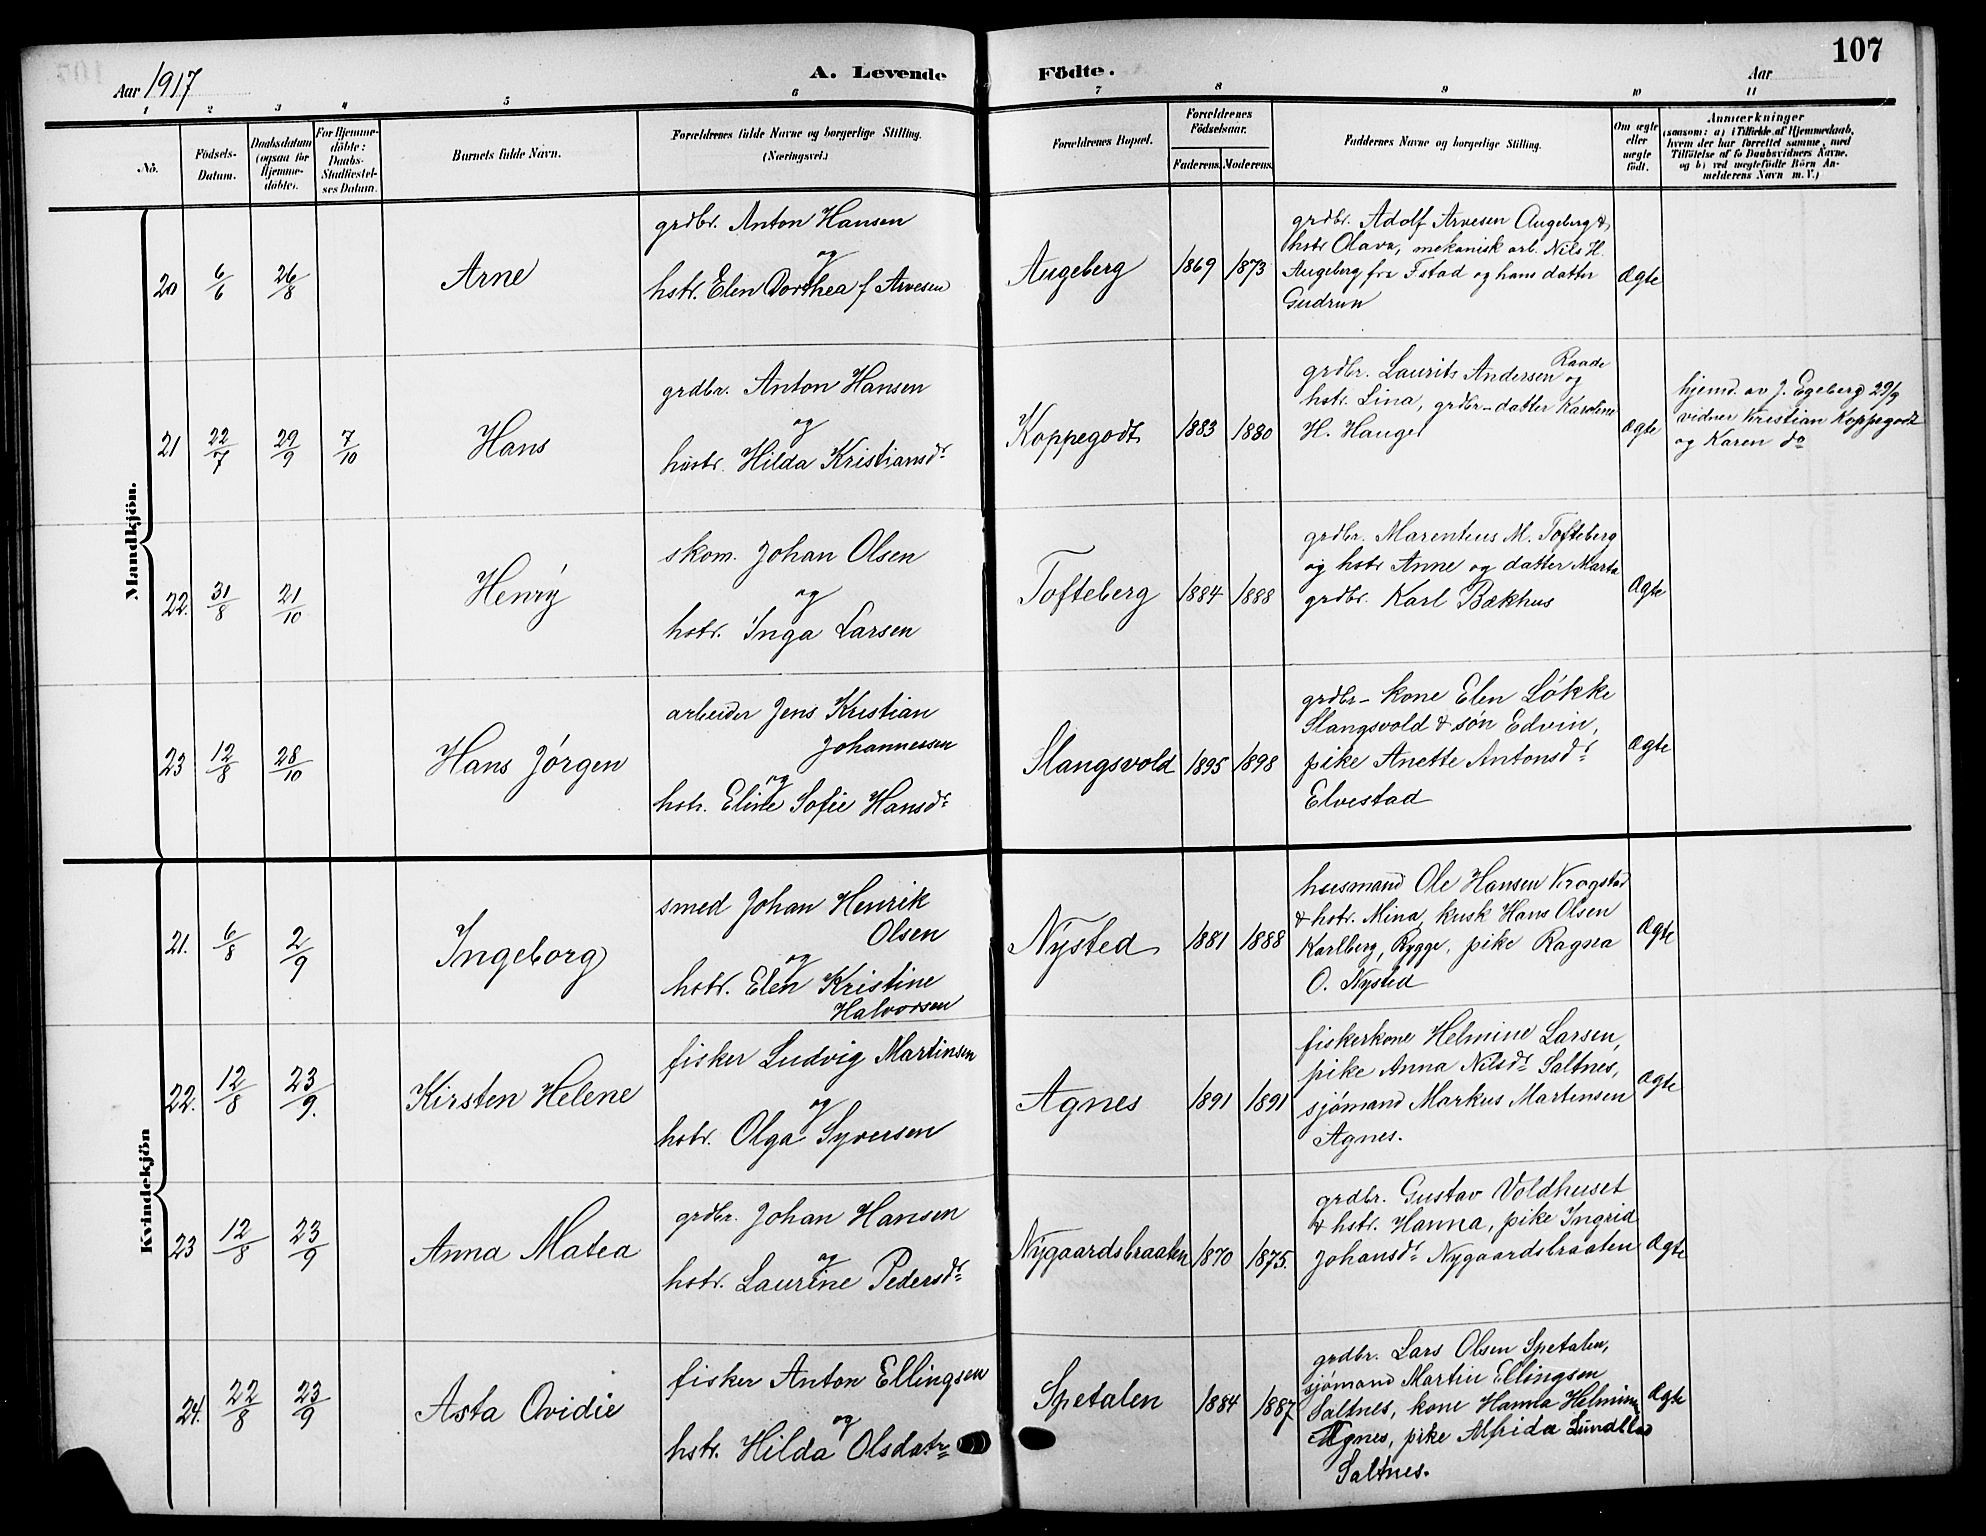 107
Aar 1917
A. Levende
Födte.
Aar
1 2 3 4 5 6 7 8 9 10 11
No.
Födsels-
Datum.
Daabsdatum
(ogsaa for
Hjemme-
döbte).
For Hjemme-
döbte:
Daabs-
Stadfæstel-
ses Datum.
Barnets fulde Navn.
Forældrenes fulde Navne og borgerlige Stilling.
(Næringsvei.)
Forældrenes Bopæl.
Forældrenes
Födselsaar.
Faderens. Moderens.
Faddernes Navne og borgerlige Stilling.
Om ægte
eller
uægte
födt.
Anmærkninger
(saasom: a) i Tilfælde af Hjemmedaab,
hvem der har forrettet samme, med
Tilföielse af to Daabsvidners Navne,
og b) ved uægtefödte Börn An-
melderens Navn m. V.)
Mandkjön.
20 6/6 26/8
Arne
grdbr. Anton Hansen
og
hstr. Elen Dorthea f Arvesen
Augeberg
1869 1873
grdbr. Adolf Arvesen Augeberg &
hstr Olava, mekanisk arb. Nils H.
Augeberg fra Fstad og hans datter
Gudrun
Ægte
21 22/7 29/9 7/10
Hans
grdbr. Anton Hansen
og
hustr. Hilda Kristiansdr
Koppegodt
1883 1880
grdbr. Laurits Andersen Raade
og
hstr. Lina, grdbr-datter Karoline
H. Hauger
Ægte
hjemd. av J. Egeberg 29/9
vidner Kristian Koppegodt
og Karen do
22. 31/8 21/10
Henry
skom. Johan Olsen
og
hstr. Inga Larsen
Tofteberg
1884 1888
grdbr. Marentius M. Tofteberg
og hstr Anne og datter Marta
grdbr. Karl Bækhus
Ægte
23 12/8 28/10
Hans Jörgen
arbeider Jens Kristian
Johannessen
og
hstr. Eline Sofie Hansdr
Slangsvold
1895 1898
grdbr-kone Elen Lökke
Slangsvold & sön Edvin,
pike Anette Antonsdr
Elvestad
Ægte
Kvindekjön
21. 6/8 2/9
Ingeborg
smed Johan Henrik
Olsen
og
hstr. Elen Kristine
Halvorsen
Nysted
1881 1888
husmand Ole Hansen Krogstad
& hstr. Mina, kusk Hans Olsen
Karlberg, Rygge, pike Ragna
O. Nysted
Ægte
22. 12/8 23/9.
Kirsten Helene
fisker Ludvig Martinsen
og
hstr. Olga Syversen
Agnes
1891 1891
fiskerkone Helmine Larsen,
pike Anna Nilsdr Saltnes,
sjömand Markus Martensen
Agnes.
Ægte
23 12/8 23/9
Anna Matea
grdbr. Johan Hansen
og
hstr. Laurine Pedersdr
Nygaardsbraaten
1870 1875.
grdbr. Gustav Voldhuset
& hstr. Hanna, pike Ingrid
Johansdr Nygaardsbraaten
Ægte
24. 22/8 23/9
Asta Ovidie
fisker Anton Ellingsen
og
hstr. Hilda Olsdatr
Spetalen
1884 1887
grdbr. Lars Olsen Spetalen,
sjömand Martin Ellingsen
Saltnes, kone Hanna Helmine
Agnes, pike Alfrida Lundblad
Saltnes.
Ægte